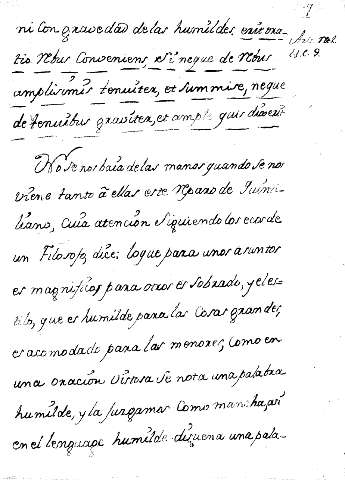 7
ni con gravedad de las humildes, erit ora-
tio rebus conveniens, si neque de rebus
amplisimis tenuiter, et summise, neque
de tenuibus graviter, et ample quis dixerit
No se nos baia de las manos quando se nos
viene tanto â ellas este reparo de Quinti-
liano, cuia atención siguiendo los ecos de
un Filosofo, dice: lo que para unos asuntos
es magnifico, para otros es sobrado, y el es-
tilo, que es humilde para las cosas grandes,
es acomodado para las menores, como en
una oración vistosa se nota una palabra
humilde, y la jurgamos como mancha, asi
en el lenguage humilde disuena una pala-